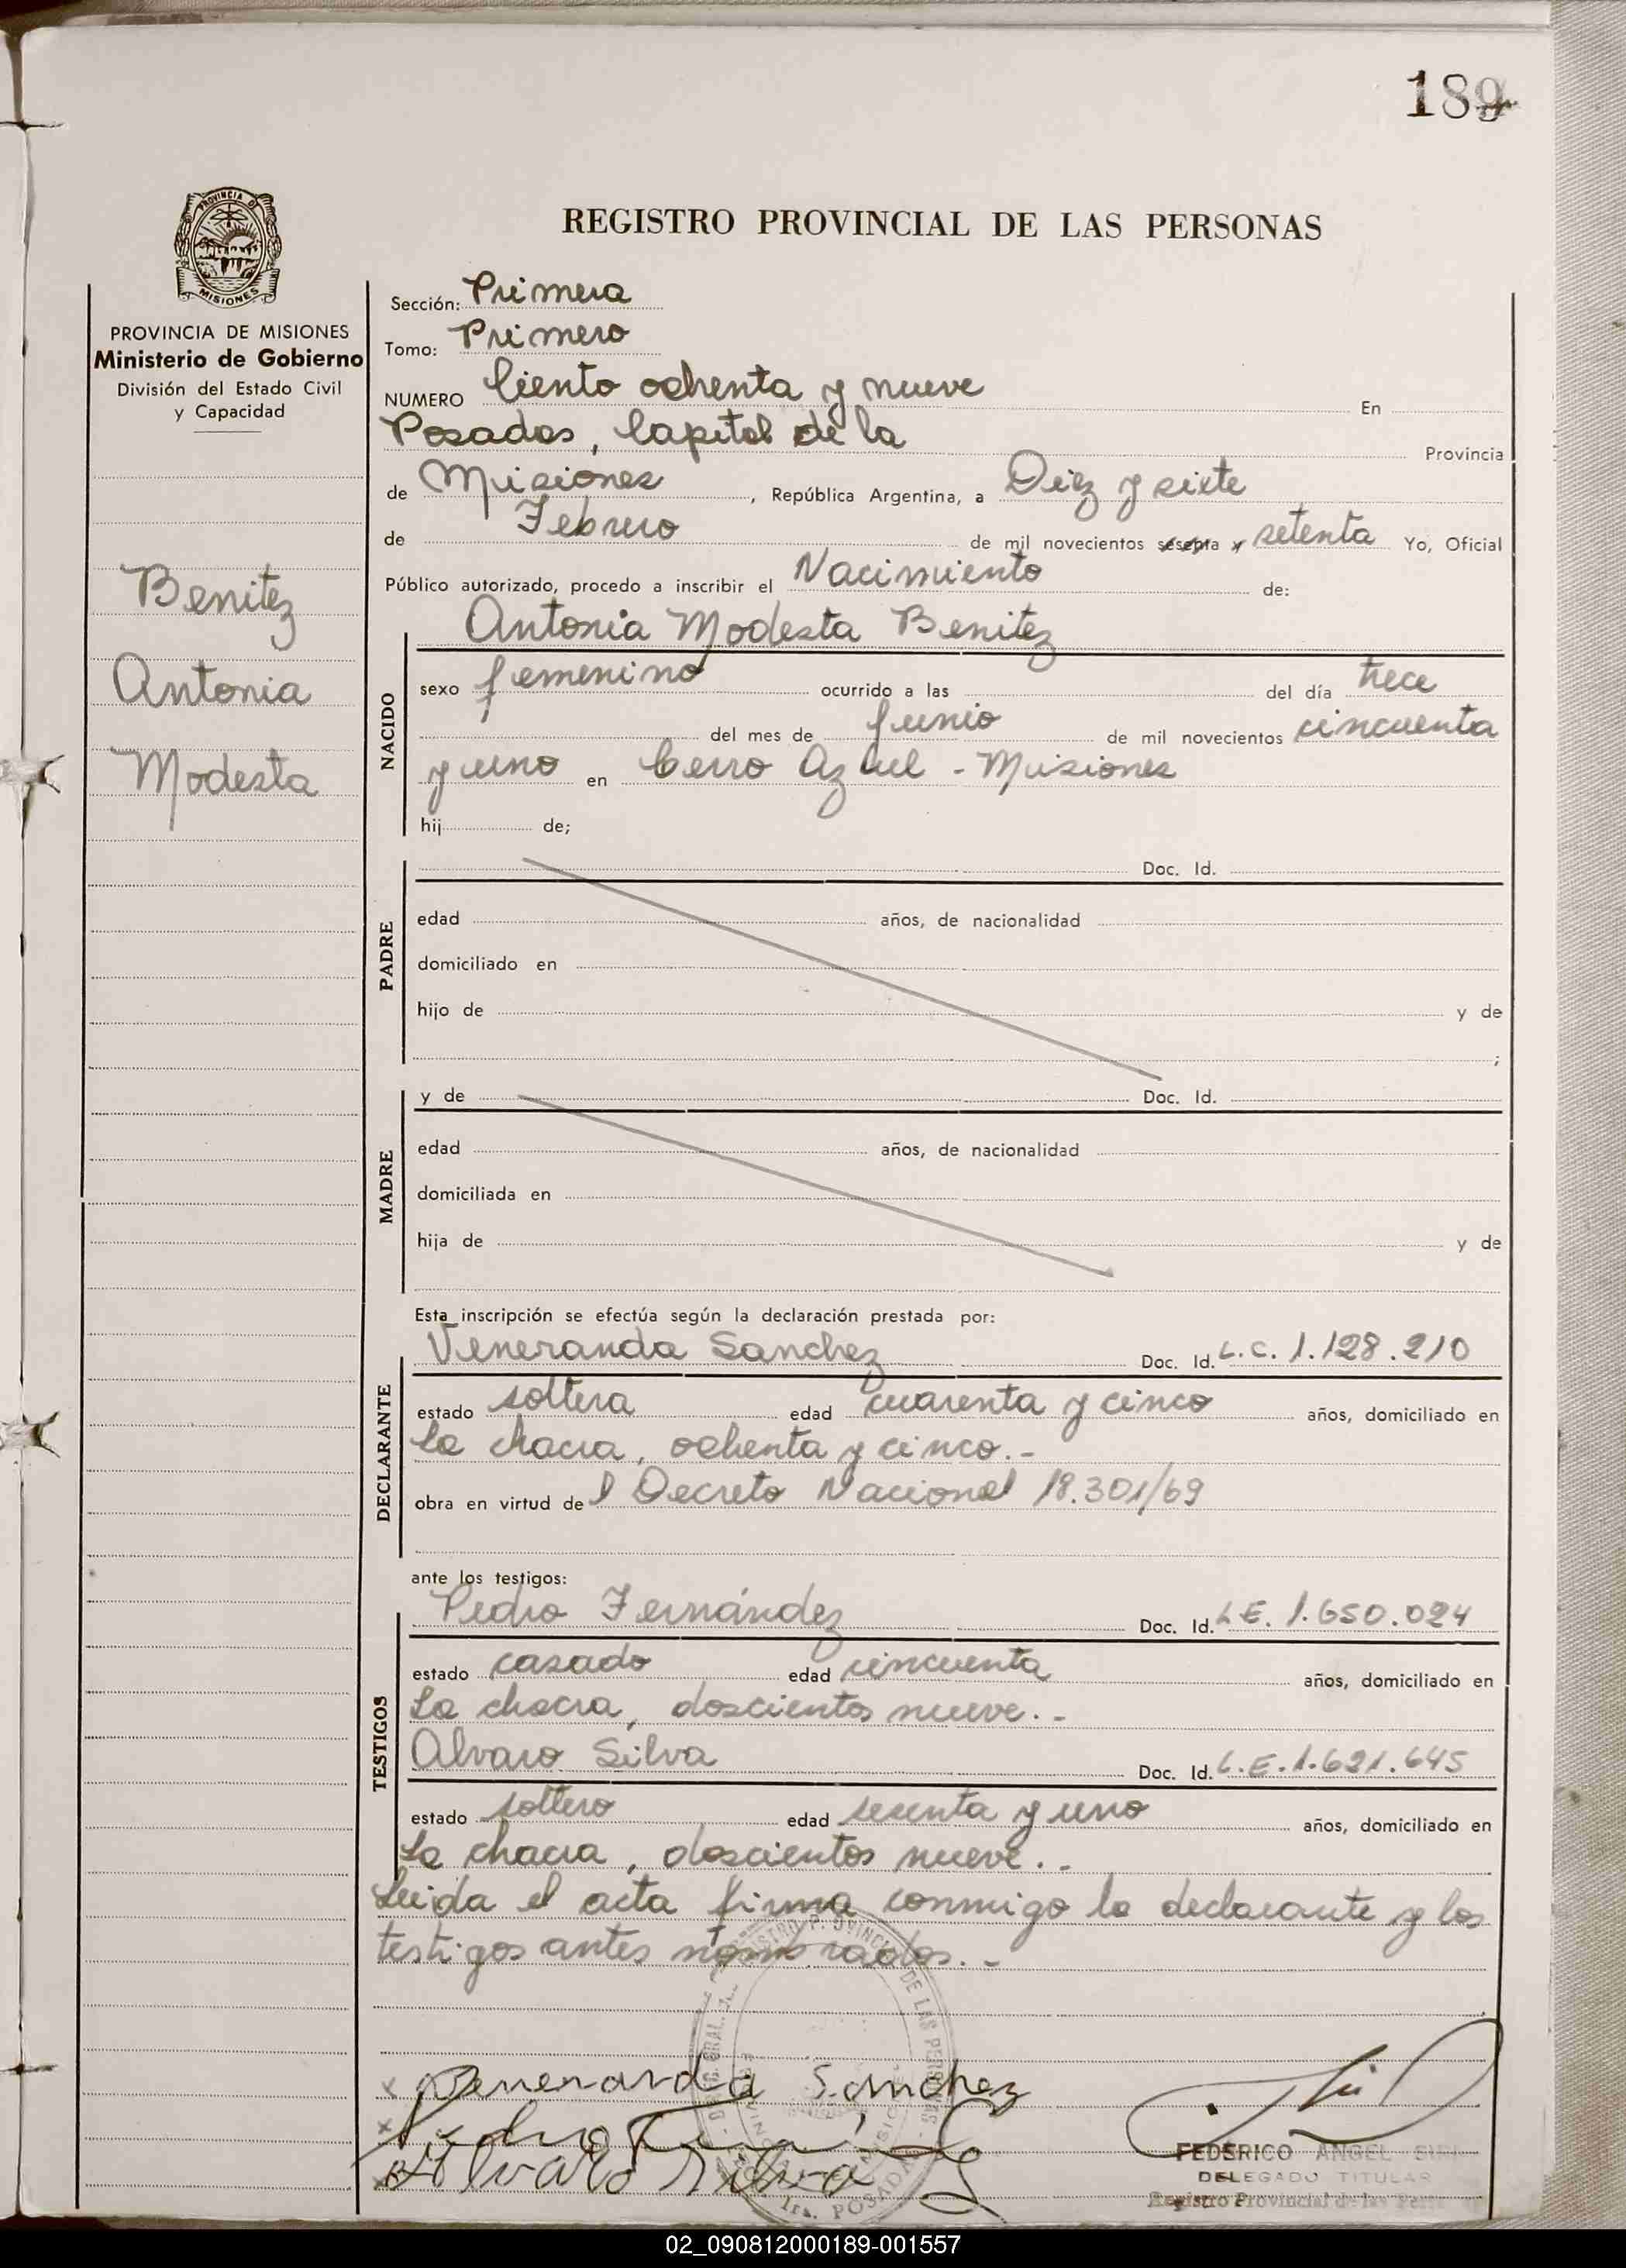 189
PROVINCIA DE
MISIONES
REGISTRO PROVINCIAL DE LAS PERSONAS
PROVINCIA DE MISIONES
Ministerio de Gobierno
División del Estado Civil
y Capacidad
Benitez
Antonia
Modesta
Sección: Primera
Tomo: Primero
NUMERO Ciento ochenta y nueve En
Posadas, Capital de la Provincia
de Misiones, República Argentina, a Diez y siete
de Febrero de mil novecientos sesenta y setenta Yo, Oficial
Público autorizado, procedo a inscribir el Nacimiento de:
Antonia Modesta Benitez
NACIDO
sexo femenino ocurrido a las del día trece
del mes de Junio de mil novecientos cincuenta
y uno en Cerro Azul - Misiones
hij de;
PADRE
Doc. Id.
edad años, de nacionalidad
domiciliado en
hijo de y de
;
MADRE
y de Doc. Id.
edad años, de nacionalidad
domiciliada en
hija de y de
Esta inscripción se efectúa según la declaración prestada por:
DECLARANTE
Veneranda Sanchez Doc. Id. L.C. 1.128.210
estado soltera edad cuarenta y cinco años, domiciliado en
la chacra, ochenta y cinco.-
obra en virtud del Decreto Nacional 18.301/69
ante los testigos:
TESTIGOS
Pedro Fernández Doc. Id. L.E. 1.650.024
estado casado edad cincuenta años, domiciliado en
La chacra, doscientos nueve.-
Alvaro Silva Doc. Id. L.E. 1.621.645
estado soltero edad sesenta y uno años, domiciliado en
La chacra, doscientos nueve.-
Leida el acta firma conmigo la declarante y los
testigos antes nombrados.-
x Benerarda Sanchez
x Pedro
x Alvaro Silva
FEDERICO ANGEL
DELEGADO TITULAR
Registro Provincial de las
DE LAS PERSONAS
POSADAS
02_090812000189-001557